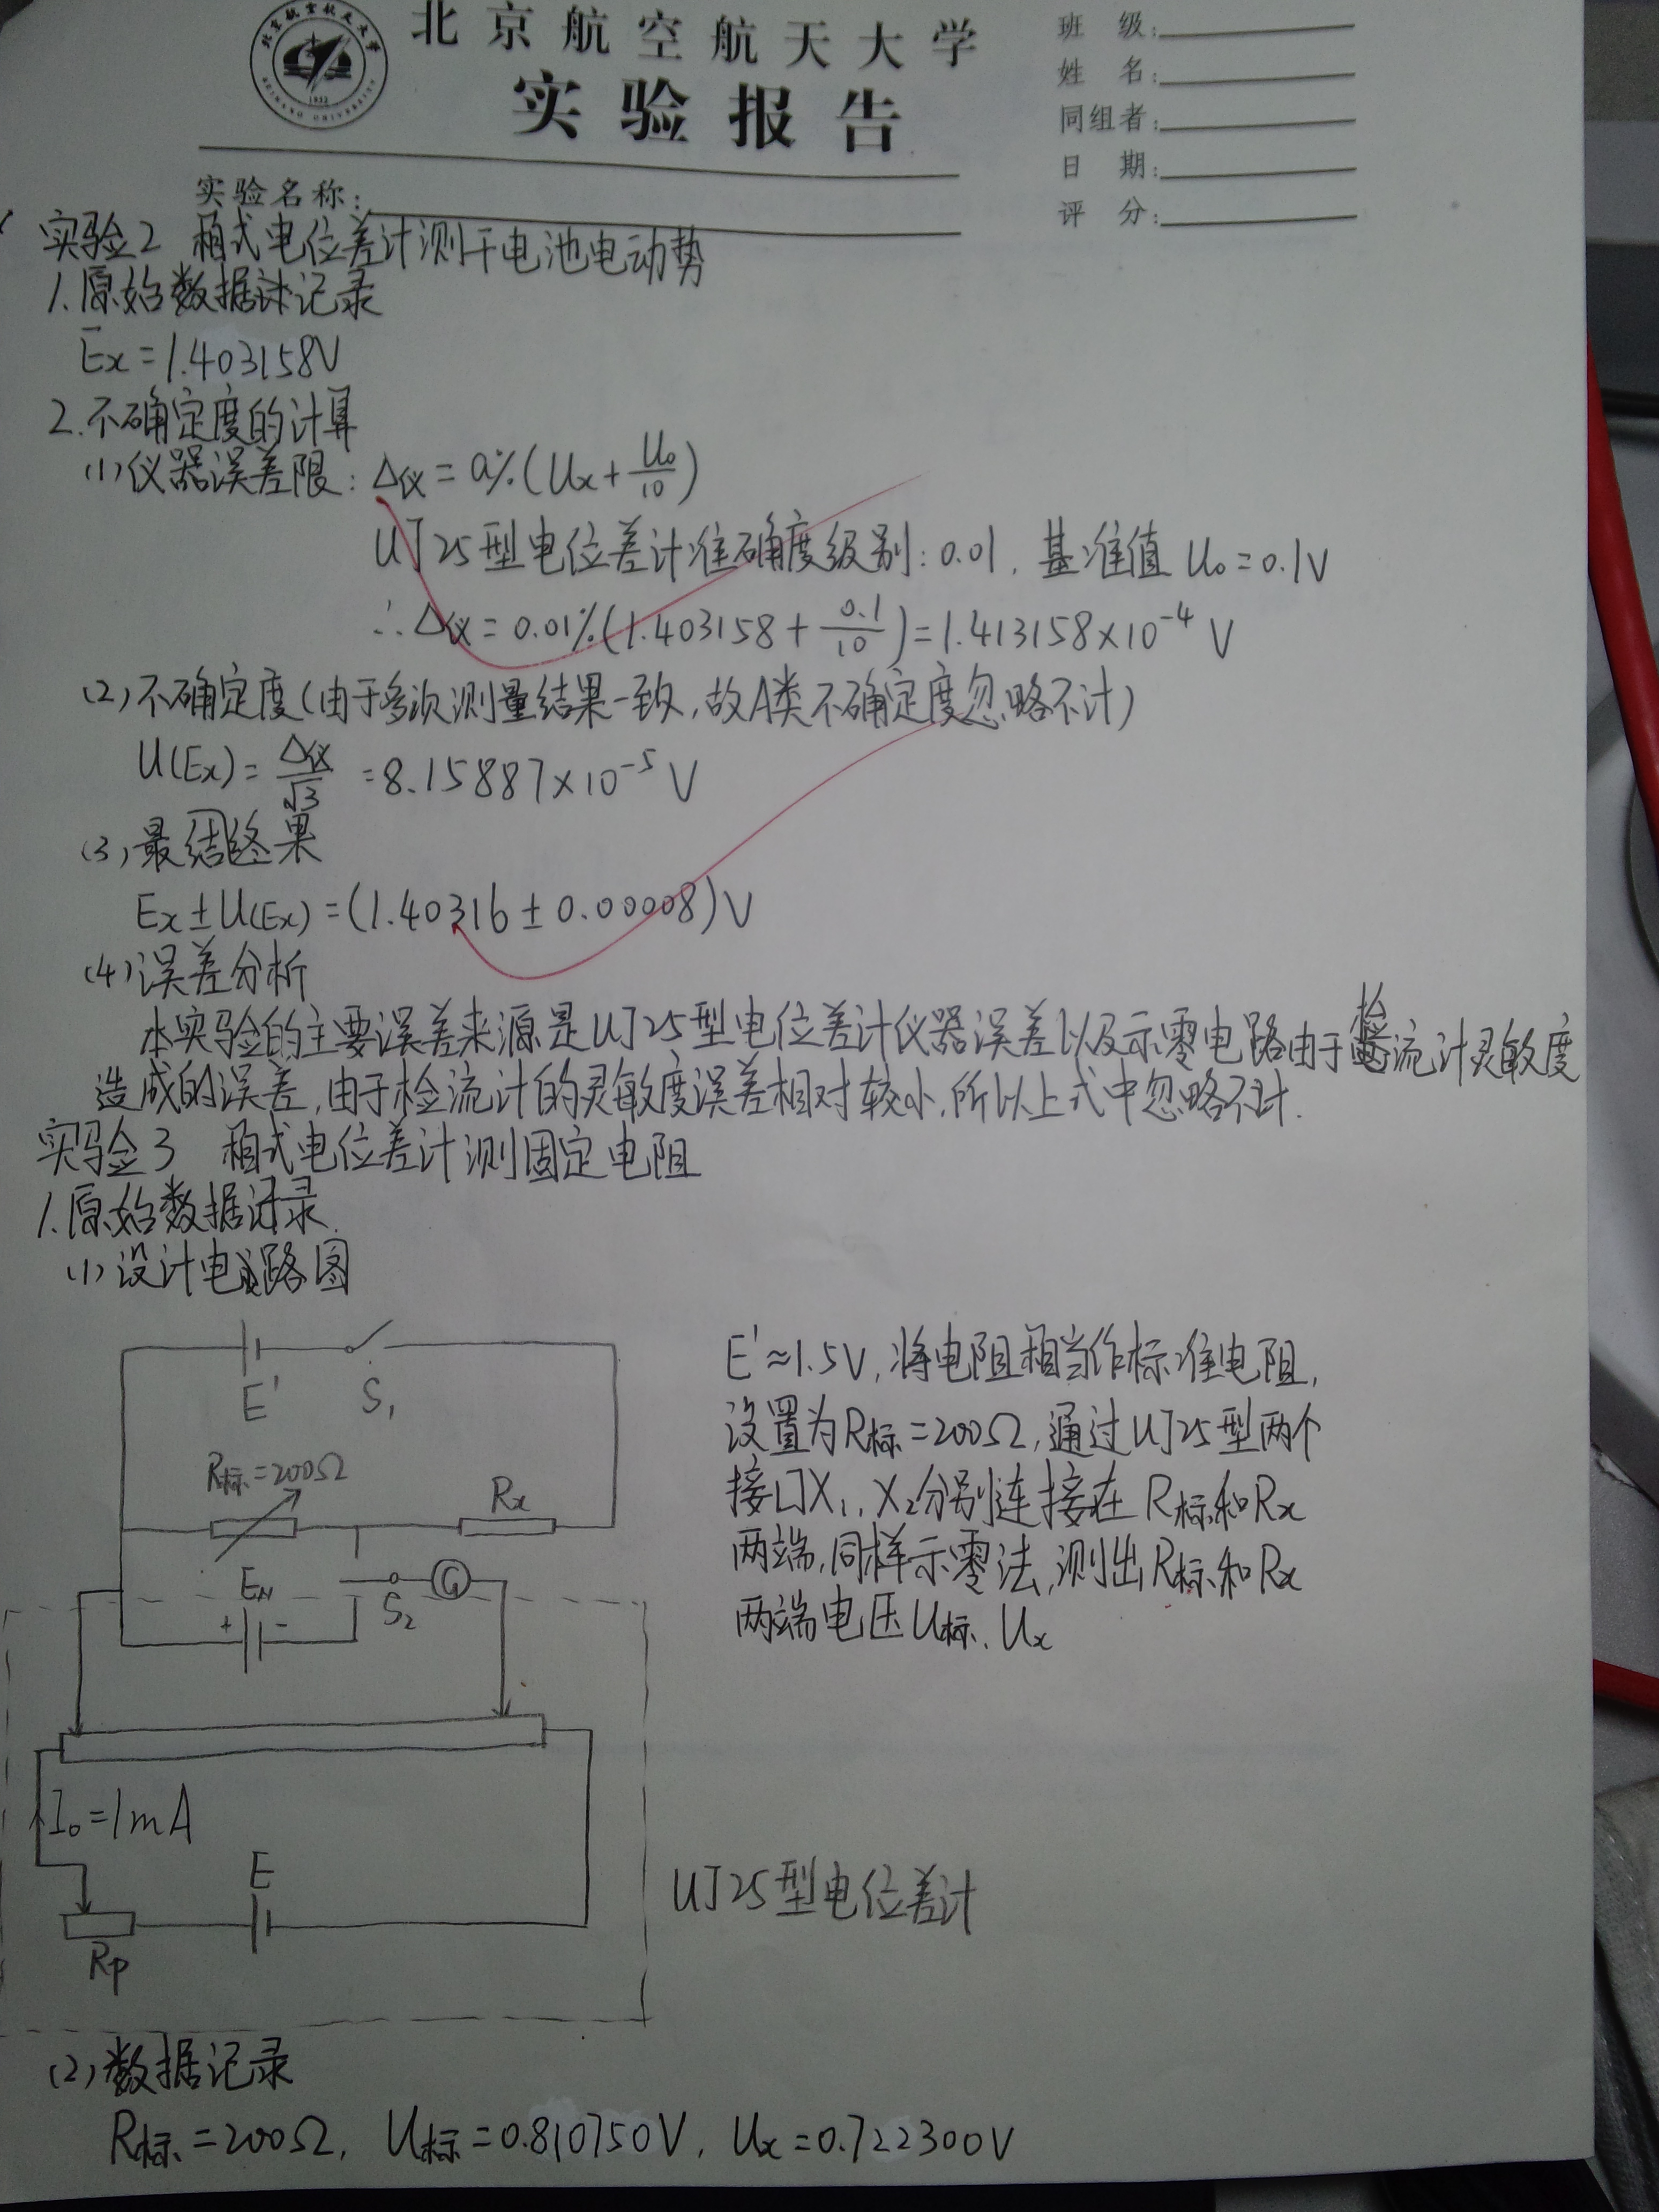 北京航空航天大学
实验报告
班 级:
姓 名:
同组者:
日 期:
评 分:
实验名称:
1952
实验2 箱式电位差计测干电池电动势
1.原始数据记录
Ēx=1.403158V
2.不确定度的计算
(1)仪器误差限: Δ仪=a%(Ux+U₀/10)
UJ25型电位差计准确度级别:0.01, 基准值U₀=0.1V
∴Δ仪=0.01%(1.403158+0.1/10)=1.413158×10⁻⁴V
(2)不确定度(由于多次测量结果一致,故A类不确定度忽略不计)
U(Ex)=Δ仪/√3=8.15887×10⁻⁵V
(3)最终结果
Ex±U(Ex)=(1.40316±0.00008)V
(4)误差分析
本实验的主要误差来源是UJ25型电位差计仪器误差以及示零电路由于检流计灵敏度
造成的误差,由于检流计的灵敏度误差相对较小,所以上式中忽略不计.
实验3 箱式电位差计测固定电阻
1.原始数据记录.
(1)设计电路图
E'
S₁
R标=200Ω
Rx
EN
+
-
S₂
G
I₀=1mA
E
Rp
UJ25型电位差计
E'≈1.5V,将电阻箱当作标准电阻,
设置为R标=200Ω,通过UJ25型两个
接口X₁、X₂分别连接在R标和Rx
两端,同样示零法,测出R标和Rx
两端电压U标、Ux
(2)数据记录
R标=200Ω, U标=0.810750V, Ux=0.722300V